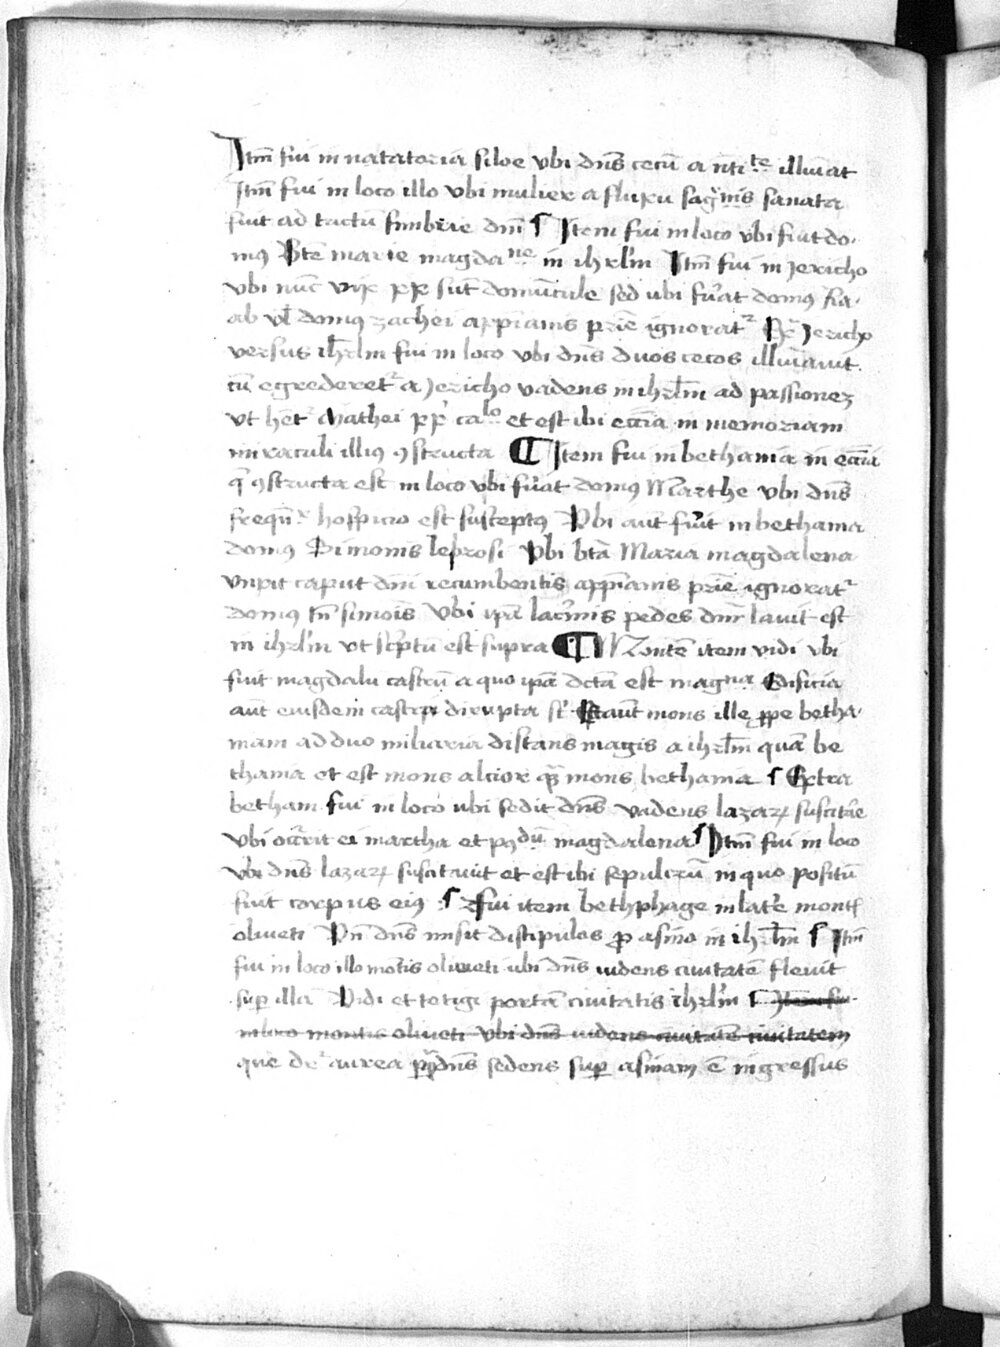 Itm̄ fui in natatoria siloe vbi dn̄s cecū a nti^te illūiat
Itm̄ fui in loco illo vbi mulier a fluxu sag̾nis sanata
fuit ad tactū fimbrie dn̄i ¶ Item fui in loco vbi fuit do-
mꝰ Bt̄e marie magda^ne in ihrl̄m Itm̄ fui in Jericho
vbi nūc sūt domūcule sed ubi fu̾at domꝰ
ab vl̄ domꝰ zachei a xp̄ianis ignorat^r Jericho
versus ihrl̄m fui in loco vbi dn̄s duos cecos illūiauit
cū egrederet^r a Jericho vadens in ihrl̄m ad passionez
vt het^r Mathei ca^lo et est ibi ecc̄ia in memoriam
miraculi illiꝰ ꝯstructa ¶ Item fui in bethania in ecc̄ia
q̄ ꝯstructa est in loco vbi fu̾at domꝰ Marthe vbi dn̄s
freqn̄^r hospicio est susceptꝰ Vbi aut̄ fu̾it in bethania
domꝰ Simonis leprosi Vbi bt̄a Maria magdalena
vnxit caput dn̄i recumbentis a xp̄ianis ignorat^r
domꝰ tn̄ simōis Vbi ip̄a lac̾mis pedes dn̄i lauit est
in ihrl̄m vt sc̾ptū est supra ¶ Montē item vidi vbi
fuit magdalū castrū a quo ip̄a dc̄ta est mag^na Edificia
aut̄ eiusdem castri dirupta st̄ Est aut̄ mons ille ꝓpe betha-
niam ad duo miliaria distans magis a ihrl̄m quā be
thania et est mons alcior qͣ mons bethania ¶ Extra
betham̄ fui in loco ubi sedit dn̄s vadens lazaꝝ suscitare
vbi occ̾rit ei martha et magdalena ¶ Itm̄ fui in loco
vbi dn̄s lazaꝝ suscitauit et est ibi sepulcrū in quo positū
fuit corpus eiꝰ ¶ fui item bethphage in lat̾e montꝭ
oliueti Vn̄ dn̄s misit discipulos ꝓ asino in ihrl̄m ¶ Itm̄
fui in loco illo mōtis oliueti ubi dn̄s uidens ciuitatē fleuit
sup̱ illā Vidi et tetigi portā ciuitatis ihrl̄m ¶ Item fui
in loco montis oliueti vbi dn̄s uidens ciuitatē ciuitatem
que dr̄ aurea dn̄s sedens sup̱ asinam ē ingressus